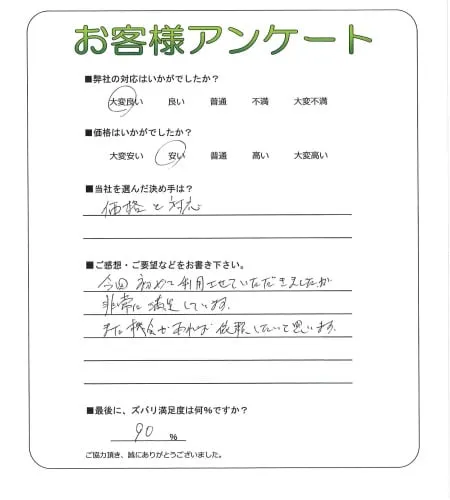 お客様アンケート
■弊社の対応はいかがでしたか？
大変良い 良い 普通 不満 大変不満
■価格はいかがでしたか？
大変安い 安い 普通 高い 大変高い
■当社を選んだ決め手は？
価格と対応
■ご感想・ご要望などをお書き下さい。
今回初めて利用させていただきましたが
非常に満足しています。
また機会があれば依頼したいと思います。
■最後に、ズバリ満足度は何％ですか？
90 ％
ご協力頂き、誠にありがとうございました。